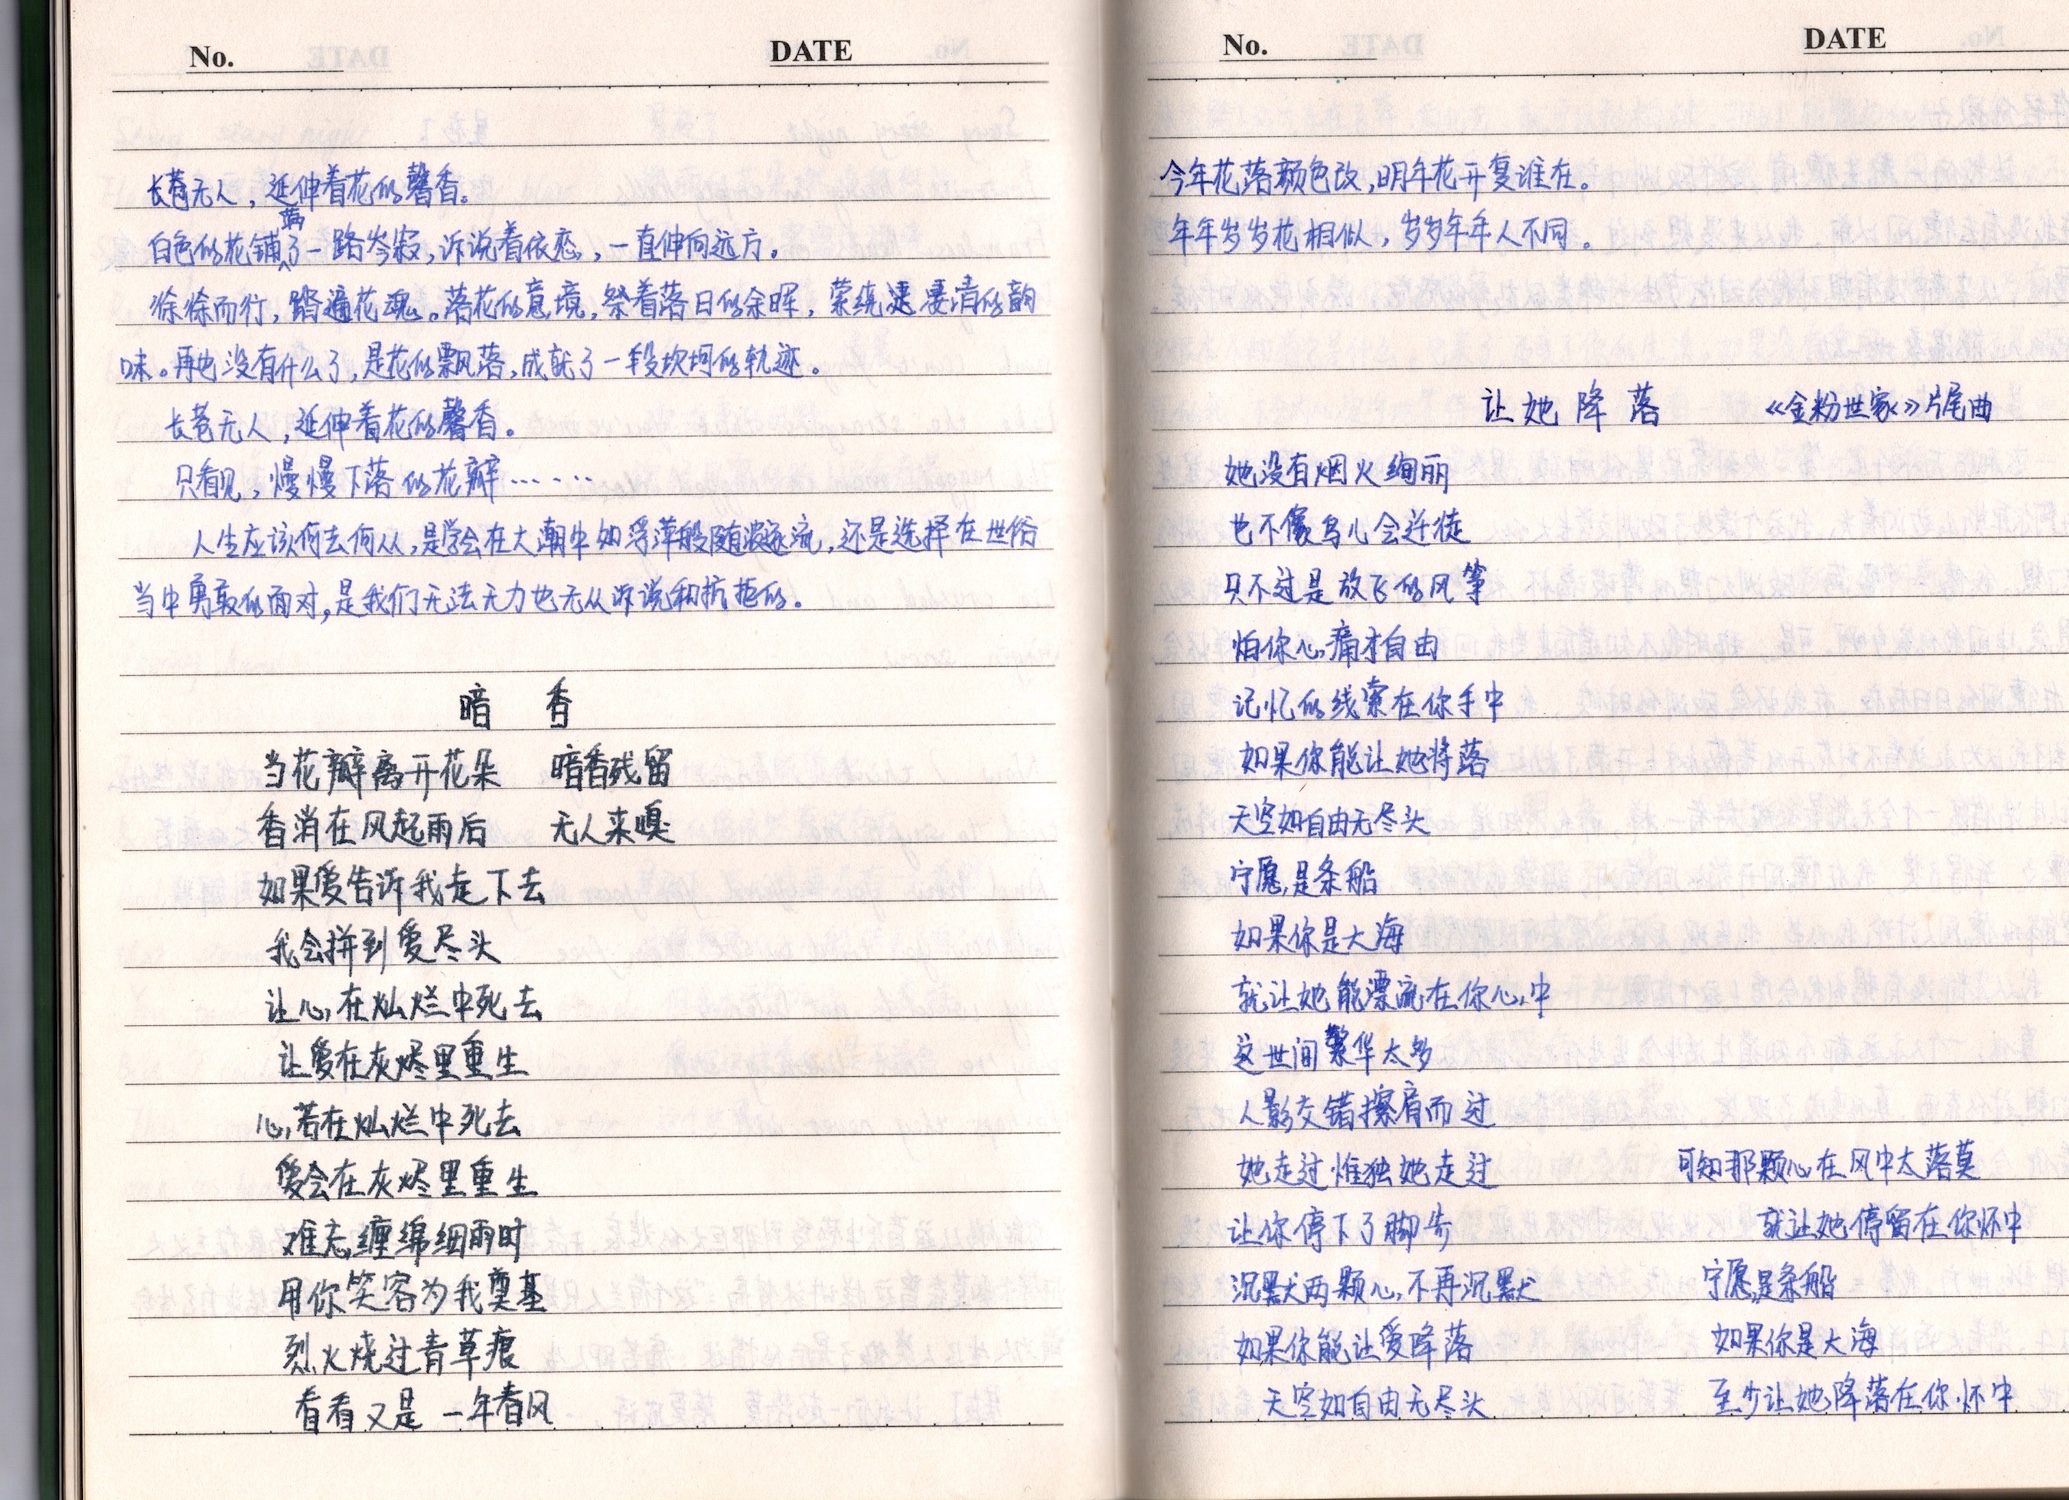 No. DATE
长巷无人，延伸着花的馨香。
白色的花铺满了一路岑寂，诉说着依恋，一直伸向远方。
徐徐而行，踏遍花魂。落花的意境，祭着落日的余晖，萦绕凄清的韵
味。再也没有什么了，是花的飘落，成就了一段坎坷的轨迹。
长巷无人，延伸着花的馨香。
只看见，慢慢下落的花瓣……
人生应该何去何从，是学会在大潮中如浮萍般随波逐流，还是选择在世俗
当中勇敢的面对，是我们无法无力也无从诉说和抗拒的。
暗 香
当花瓣离开花朵 暗香残留
香消在风起雨后 无人来嗅
如果爱告诉我走下去
我会拼到爱尽头
让心在灿烂中死去
让爱在灰烬里重生
心若在灿烂中死去
爱会在灰烬里重生
难忘缠绵细雨时
用你笑容为我奠基
烈火烧过青草痕
看看又是一年春风
No. DATE
今年花落颜色改，明年花开复谁在。
年年岁岁花相似，岁岁年年人不同。
让她降落 《金粉世家》片尾曲
她没有烟火绚丽
也不像鸟儿会迁徙
只不过是放飞的风筝
怕你心痛才自由
记忆的线索在你手中
如果你能让她将落
天空如自由无尽头
宁愿是条船
如果你是大海
就让她能漂流在你心中
这世间繁华太多
人影交错擦肩而过
她走过惟独她走过
让你停下了脚步
沉默两颗心不再沉默
如果你能让爱降落
天空如自由无尽头
可知那颗心在风中太落莫
就让她停留在你怀中
宁愿是条船
如果你是大海
至少让她降落在你怀中